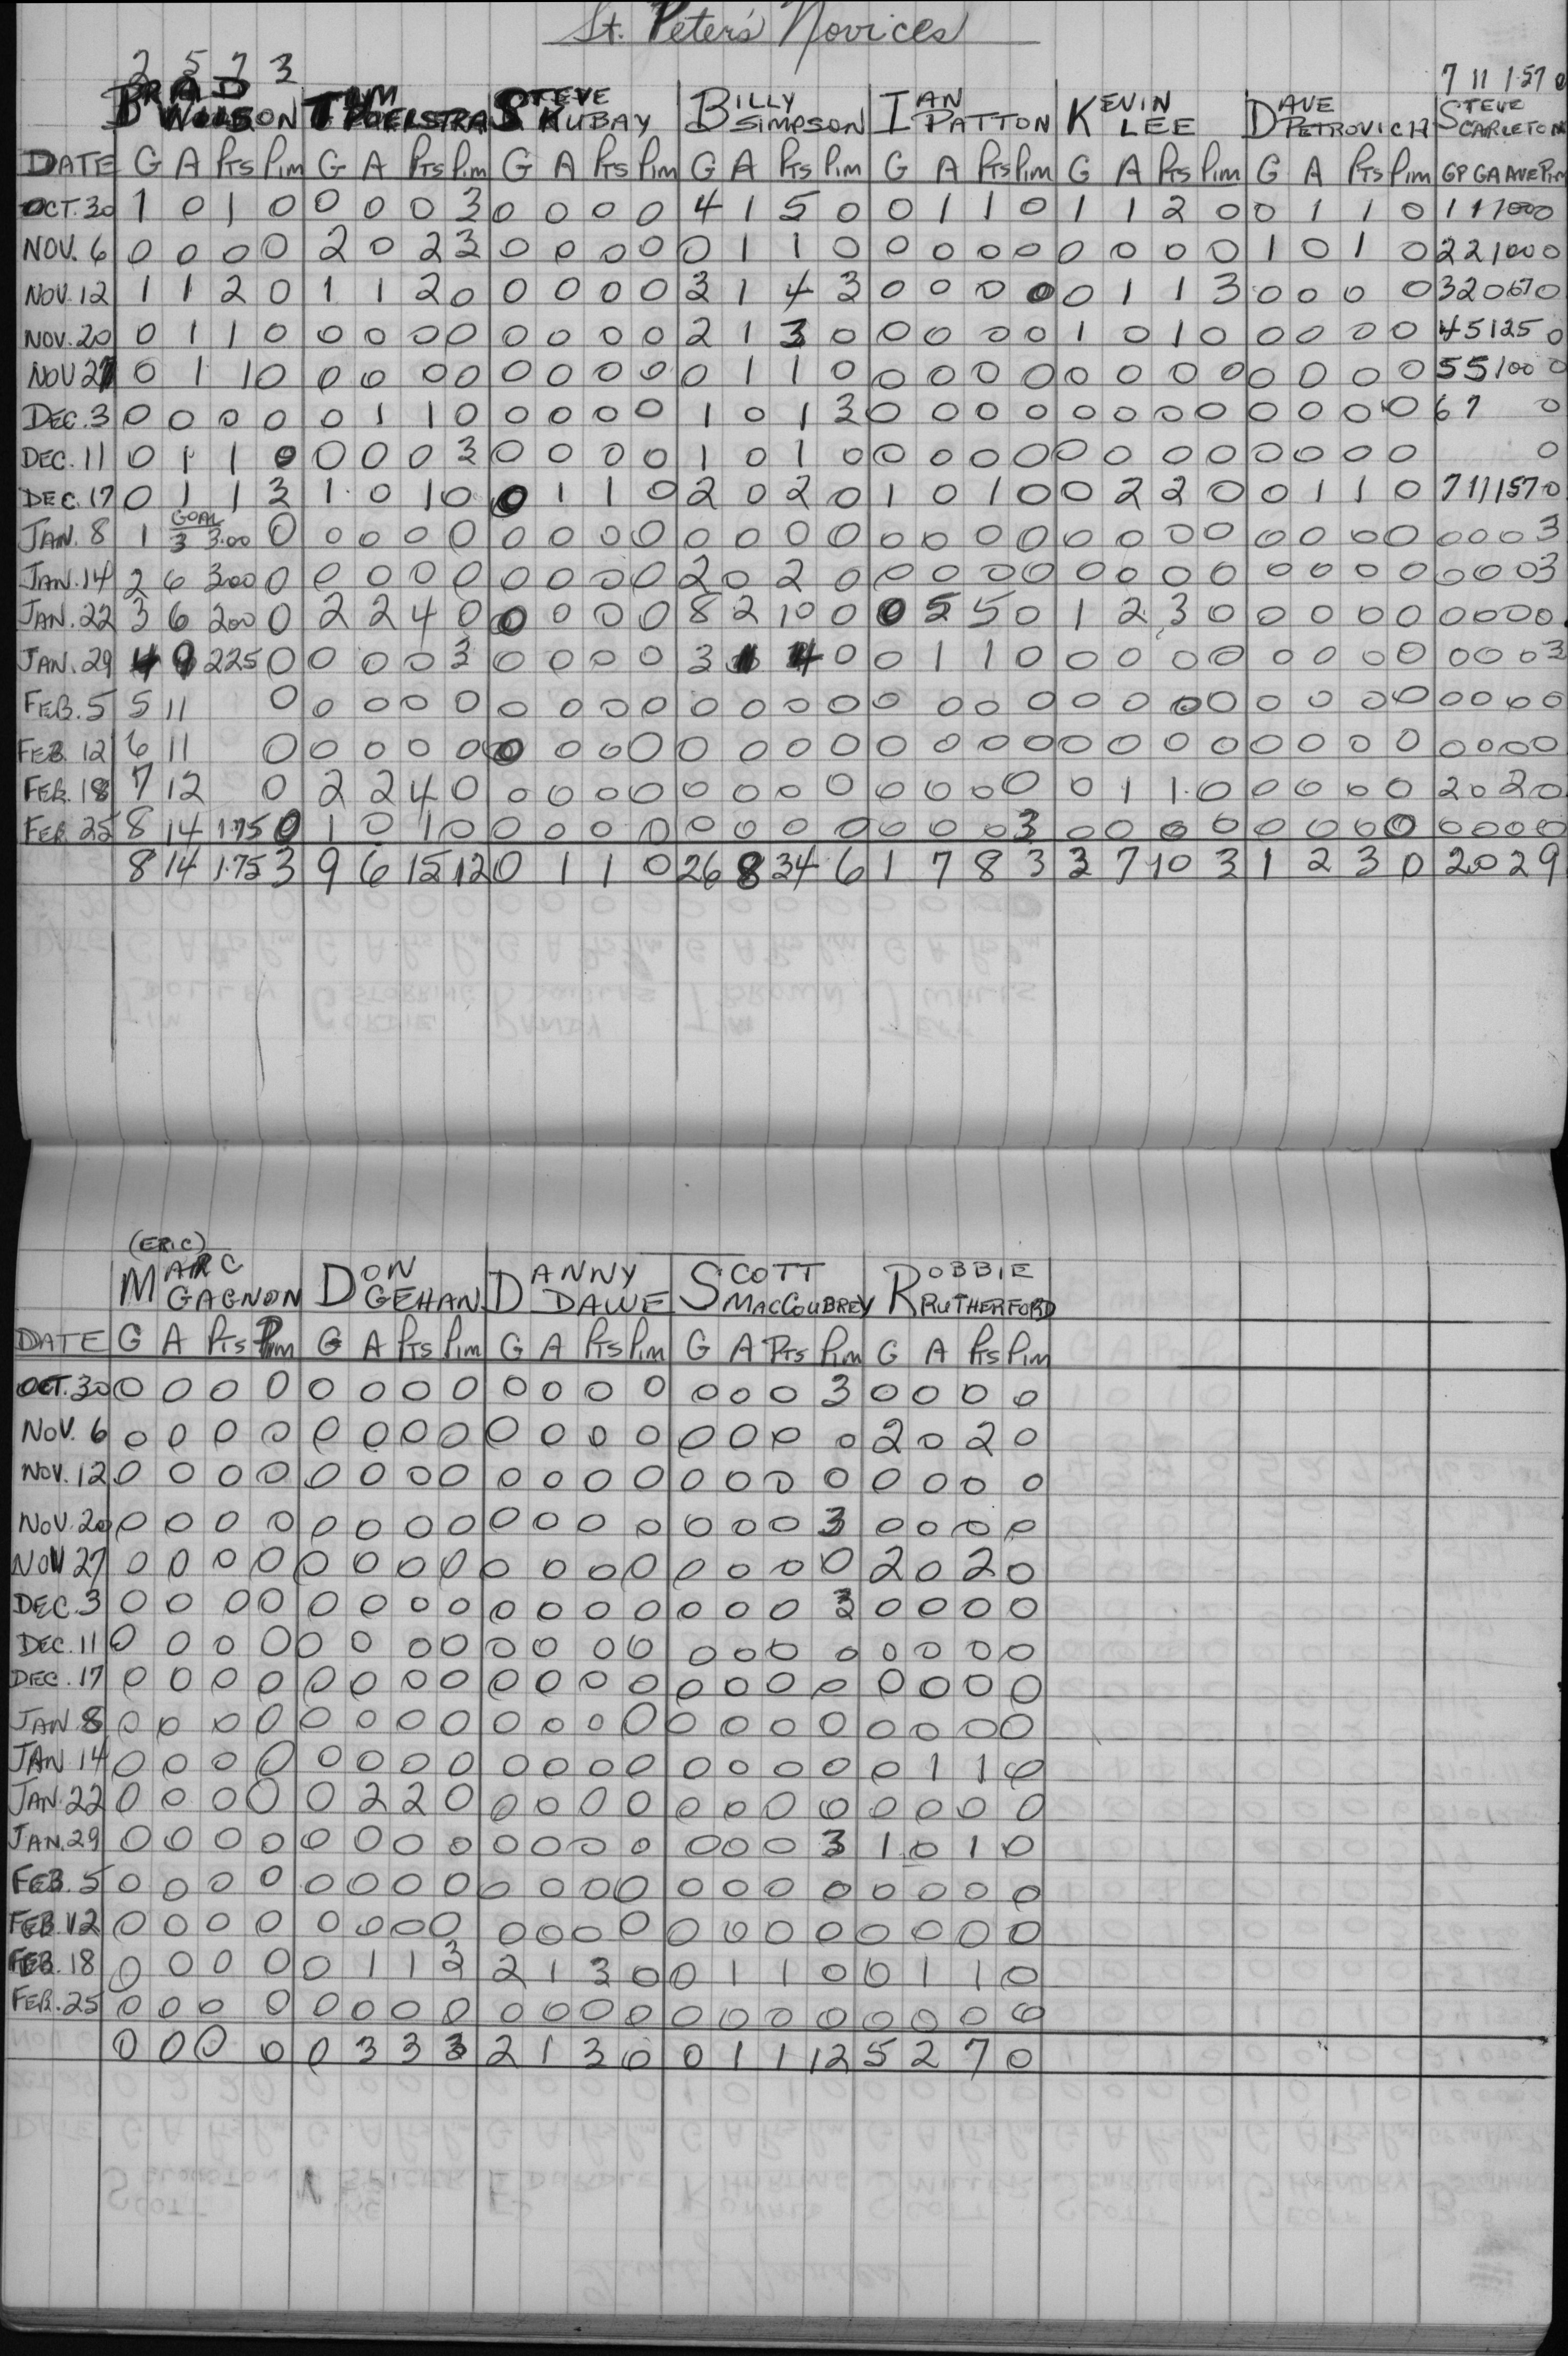 St. Peter's Novices
2 5 7 3 7 11 1.57 0
BRAD TIM STEVE BILLY IAN KEVIN DAVE STEVE
WILSON POELSTRA KUBAY SIMPSON PATTON LEE PETROVICH CARLETON
DATE G A Pts Pim G A Pts Pim G A Pts Pim G A Pts Pim G A Pts Pim G A Pts Pim G A Pts Pim GP GA AVE Pim
OCT. 30 1 0 1 0 0 0 0 3 0 0 0 0 4 1 5 0 0 1 1 0 1 1 2 0 0 1 1 0 1 1 1000
NOV. 6 0 0 0 0 2 0 2 3 0 0 0 0 0 1 1 0 0 0 0 0 0 0 0 0 1 0 1 0 2 2 100 0
NOV. 12 1 1 2 0 1 1 2 0 0 0 0 0 3 1 4 3 0 0 0 0 0 1 1 3 0 0 0 0 3 2 067 0
NOV. 20 0 1 1 0 0 0 0 0 0 0 0 0 2 1 3 0 0 0 0 0 1 0 1 0 0 0 0 0 4 5 125 0
NOV 27 0 1 1 0 0 0 0 0 0 0 0 0 0 1 1 0 0 0 0 0 0 0 0 0 0 0 0 0 5 5 100 0
DEC. 3 0 0 0 0 0 1 1 0 0 0 0 0 1 0 1 3 0 0 0 0 0 0 0 0 0 0 0 0 6 7 0
DEC. 11 0 1 1 0 0 0 0 3 0 0 0 0 1 0 1 0 0 0 0 0 0 0 0 0 0 0 0 0 0
DEC. 17 0 1 1 3 1 0 1 0 0 1 1 0 2 0 2 0 1 0 1 0 0 2 2 0 0 1 1 0 7 11 157 0
GOAL
JAN. 8 1 3 3.00 0 0 0 0 0 0 0 0 0 0 0 0 0 0 0 0 0 0 0 0 0 0 0 0 0 0 0 0 3
JAN. 14 2 6 300 0 0 0 0 0 0 0 0 0 2 0 2 0 0 0 0 0 0 0 0 0 0 0 0 0 0 0 0 3
JAN. 22 3 6 200 0 2 2 4 0 0 0 0 0 8 2 10 0 0 5 5 0 1 2 3 0 0 0 0 0 0 0 0 0
JAN. 29 4 9 225 0 0 0 0 3 0 0 0 0 3 1 4 0 0 1 1 0 0 0 0 0 0 0 0 0 0 0 0 3
FEB. 5 5 11 0 0 0 0 0 0 0 0 0 0 0 0 0 0 0 0 0 0 0 0 0 0 0 0 0 0 0 0 0
FEB. 12 6 11 0 0 0 0 0 0 0 0 0 0 0 0 0 0 0 0 0 0 0 0 0 0 0 0 0 0 0 0 0
FEB. 18 7 12 0 2 2 4 0 0 0 0 0 0 0 0 0 0 0 0 0 0 1 1 0 0 0 0 0 2 0 2 0
FEB. 25 8 14 1.75 0 1 0 1 0 0 0 0 0 0 0 0 0 0 0 0 3 0 0 0 0 0 0 0 0 0 0 0 0
8 14 1.75 3 9 6 15 12 0 1 1 0 26 8 34 6 1 7 8 3 3 7 10 3 1 2 3 0 2 0 2 9
(ERIC)
MARC DON DANNY SCOTT ROBBIE
GAGNON GEHAN DAWE MACCOUBREY RUTHERFORD
DATE G A Pts Pim G A Pts Pim G A Pts Pim G A Pts Pim G A Pts Pim
OCT. 30 0 0 0 0 0 0 0 0 0 0 0 0 0 0 0 3 0 0 0 0
NOV. 6 0 0 0 0 0 0 0 0 0 0 0 0 0 0 0 0 2 0 2 0
NOV. 12 0 0 0 0 0 0 0 0 0 0 0 0 0 0 0 0 0 0 0 0
NOV. 20 0 0 0 0 0 0 0 0 0 0 0 0 0 0 0 3 0 0 0 0
NOV 27 0 0 0 0 0 0 0 0 0 0 0 0 0 0 0 0 2 0 2 0
DEC. 3 0 0 0 0 0 0 0 0 0 0 0 0 0 0 0 3 0 0 0 0
DEC. 11 0 0 0 0 0 0 0 0 0 0 0 0 0 0 0 0 0 0 0 0
DEC. 17 0 0 0 0 0 0 0 0 0 0 0 0 0 0 0 0 0 0 0 0
JAN 8 0 0 0 0 0 0 0 0 0 0 0 0 0 0 0 0 0 0 0 0
JAN 14 0 0 0 0 0 0 0 0 0 0 0 0 0 0 0 0 0 1 1 0
JAN. 22 0 0 0 0 0 2 2 0 0 0 0 0 0 0 0 0 0 0 0 0
JAN. 29 0 0 0 0 0 0 0 0 0 0 0 0 0 0 0 3 1 0 1 0
FEB. 5 0 0 0 0 0 0 0 0 0 0 0 0 0 0 0 0 0 0 0 0
FEB. 12 0 0 0 0 0 0 0 0 0 0 0 0 0 0 0 0 0 0 0 0
FEB. 18 0 0 0 0 0 1 1 3 2 1 3 0 0 1 1 0 0 1 1 0
FEB. 25 0 0 0 0 0 0 0 0 0 0 0 0 0 0 0 0 0 0 0 0
0 0 0 0 0 3 3 3 2 1 3 0 0 1 1 12 5 2 7 0